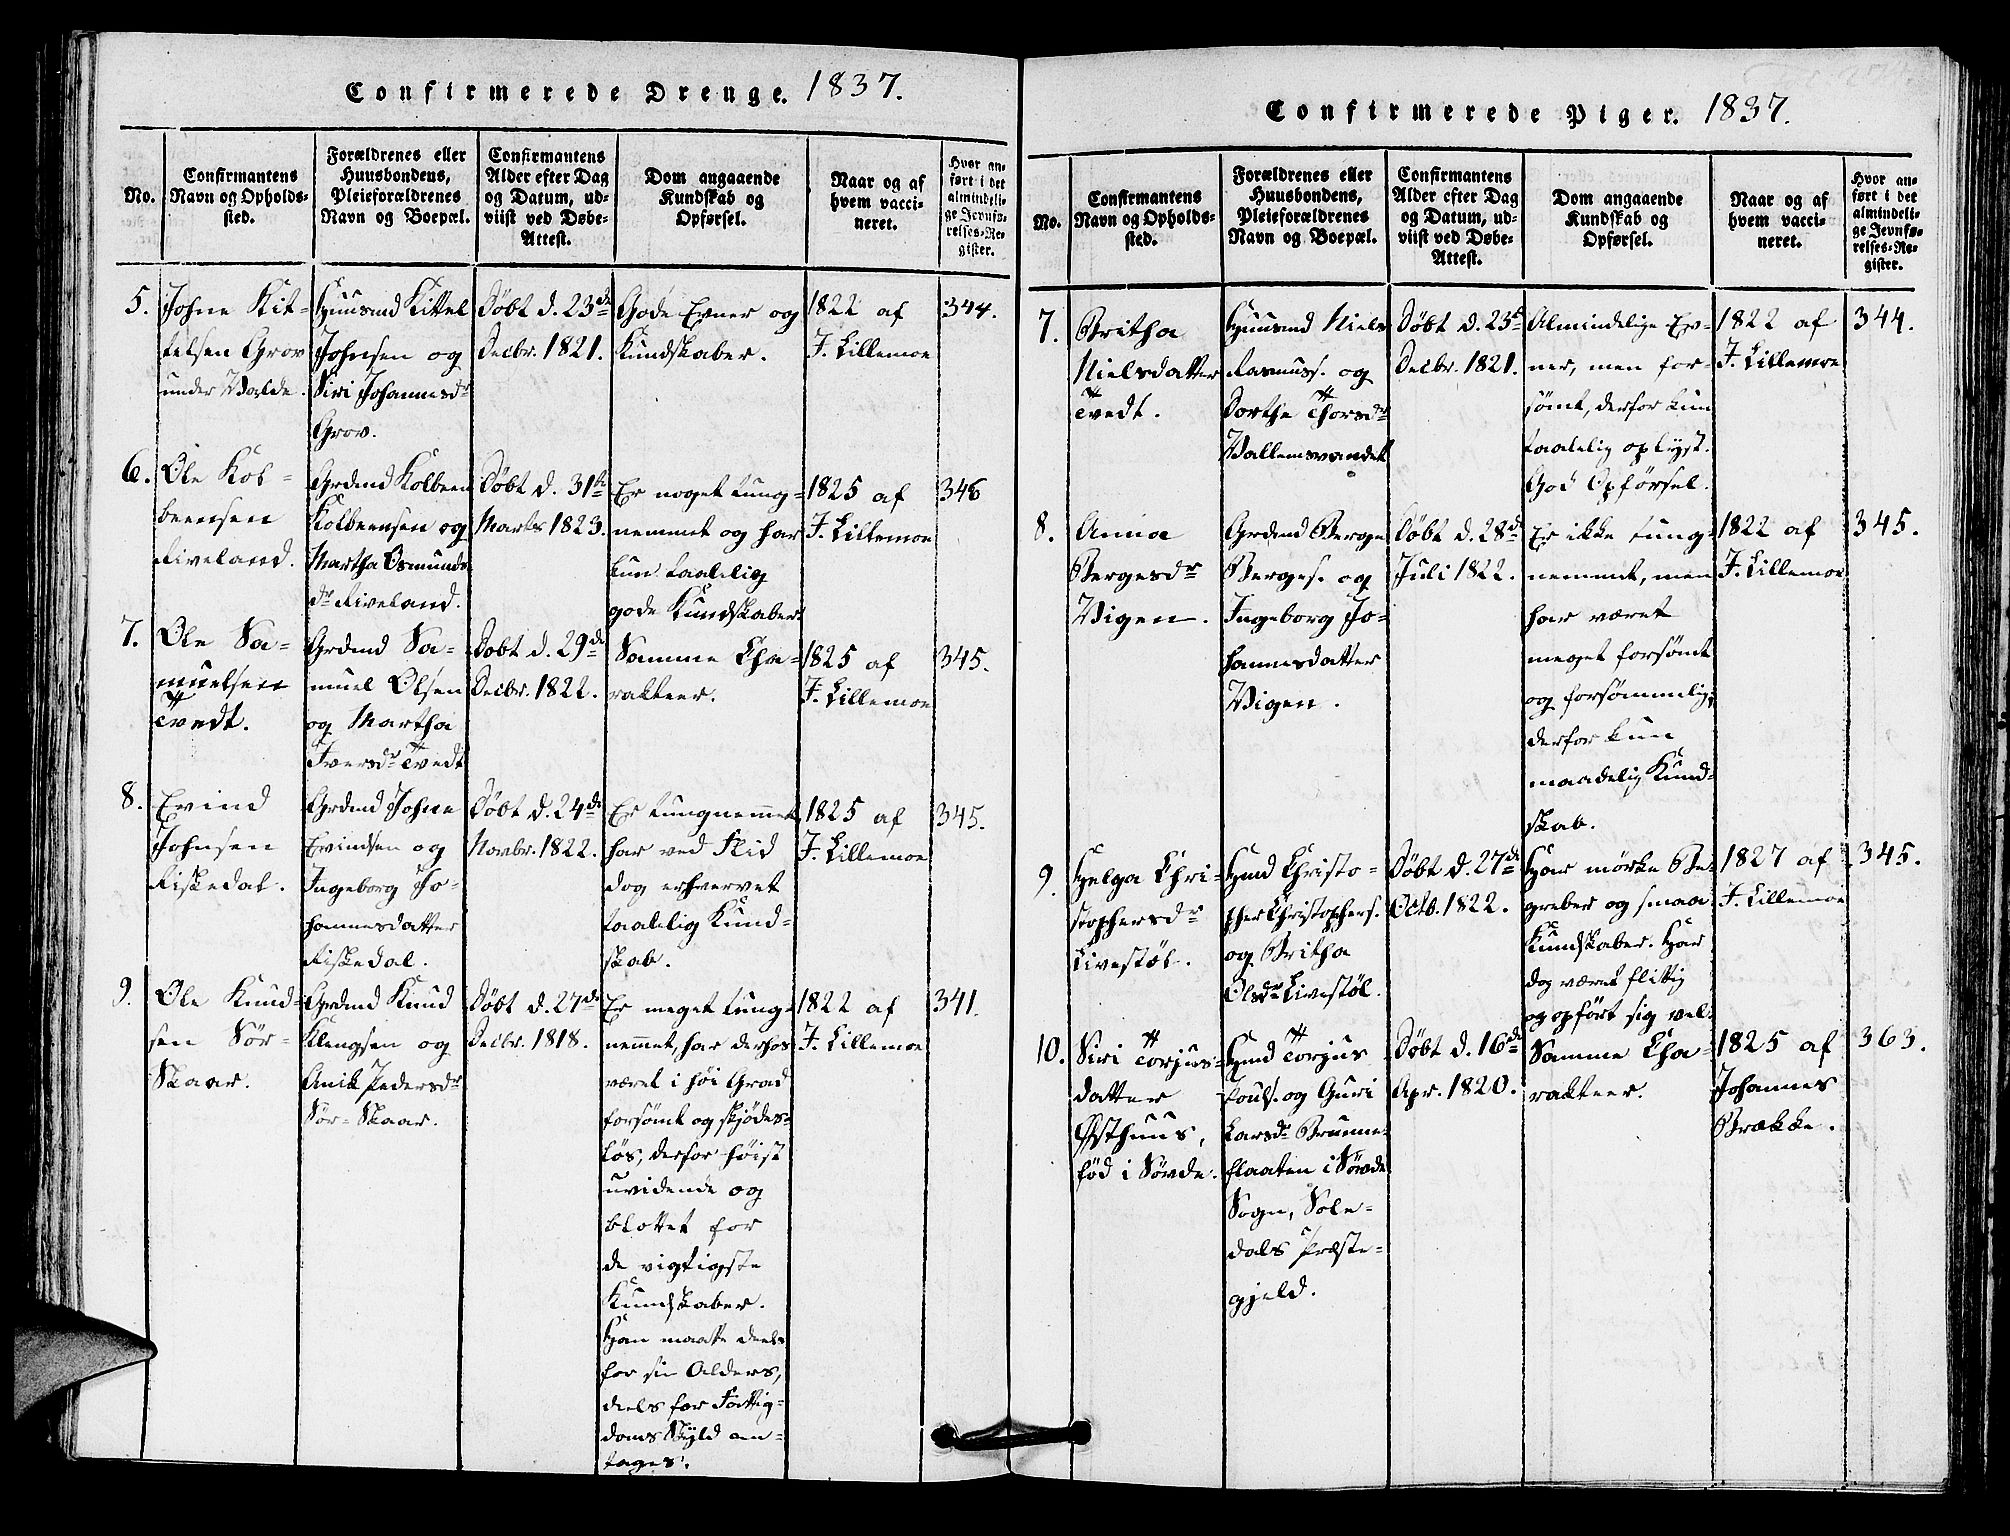 Confirmerede Drenge. 1837.
No.
Confirmantens
Navn og Opholds-
sted.
Forældrenes eller
Huusbondens,
Pleieforældrenes
Navn og Boepæl.
Confirmantens
Alder efter Dag
og Datum, ud-
viist ved Døbe-
Attest.
Dom angaaende
Kundskab og
Opførsel.
Naar og af
hvem vacci-
neret.
Hvor an-
ført i det
almindeli-
ge Jevnfø-
relses-Re-
gister.
5.
Johne Kit-
telsen Grov
under Valde.
Huusmd Kittel
Johnsen og
Siri Johannesdr
Grov.
Døbt d. 23de
Decbr. 1821.
Gode Evner og
Kundskaber.
1822 af
J. Lillemoe
344.
6.
Ole Kol-
beensen
Liveland.
Grdmd Kolbeen
Kolbeensen og
Martha Osmunds
dr Liveland.
Døbt d. 31te
Marts 1823.
Er noget tung-
nemmet og har
kun taalelig
gode Kundskaber.
1825 af
J. Lillemoe
346
7.
Ole Sa-
muelsen
Tvedt.
Grdmd Sa-
muel Olsen
og Martha
Iversdr Tvedt
Døbt d. 29de
Decbr. 1822.
Samme Cha-
rakteer.
1825 af
J. Lillemoe
345.
8.
Evind
Johnsen
Fiskedal.
Grdmd Johne
Evindsen og
Ingeborg Jo-
hannesdatter
Fiskedal.
Døbt d. 24de
Novbr. 1822.
Er tungnemmet
har ved Flid
dog erhvervet
taalelig Kund-
skab.
1825 af
J. Lillemoe
345.
9.
Ole Knud-
sen Sør-
Skaar.
Grdmd Knud
Klengsen og
Anik Pedersdr
Sør-Skaar.
Døbt d. 27de
Decbr. 1818.
Er meget tung-
nemmet, har derhos
været i høi Grad
forsømt og skjødes-
løs, derfor høist
uvidende og
blottet for
de vigtigste
Kundskaber.
Han maatte deels
for sin Alders,
deels for Fattig-
doms Skyld an-
tages.
1822 af
J. Lillemoe
341.
Confirmerede Piger. 1837.
No.
Confirmantens
Navn og Opholds-
sted.
Forældrenes eller
Huusbondens,
Pleieforældrenes
Navn og Boepæl.
Confirmantens
Alder efter Dag
og Datum, ud-
viist ved Døbe-
Attest.
Dom angaaende
Kundskab og
Opførsel.
Naar og af
hvem vacci-
neret.
Hvor an-
ført i det
almindeli-
ge Jevnfø-
relses-Re-
gister.
7.
Britha
Nielsdatter
Tvedt.
Huusmd Niels
Rasmuss. og
Dorthe Thorsdr
Vallemsvandet
Døbt d. 25de
Decbr. 1821.
Almindelige Ev-
ner, men for-
sømt, derfor kun
taalelig oplyst.
God Opførsel.
1822 af
J. Lillemoe
344.
8.
Anna
Bergesdr
Vigen.
Grdmd Berge
Berges. og
Ingeborg Jo-
hannesdatter
Vigen.
Døbt d. 28de
Juli 1822.
Er ikke tung-
nemmet, men
har været
meget forsømt
og forsømmelig,
derfor kun
maadelig Kund-
skab.
1822 af
J. Lillemoe
345.
9.
Helga Chri-
stophersdr
Livestøl.
Hmd Christo-
pher Christophers.
og Britha
Olsdr Livestøl.
Døbt d. 27de
Octb. 1822.
Har mørke Be-
greber og smaa
Kundskaber. Har
dog været flittig
og opført sig vel.
1827 af
J. Lillemoe
345.
10.
Siri Torjus-
datter
Østhuus,
fød i Søvde.
Hmd Torjus
Pouls. og Guri
Larsdr Brunne-
flaaten i Søvde
Sogn, Sole-
dals Præste-
gjeld.
Døbt d. 16de
Apr. 1820.
Samme Cha-
rakteer.
1825 af
Johannes
Brække.
363.